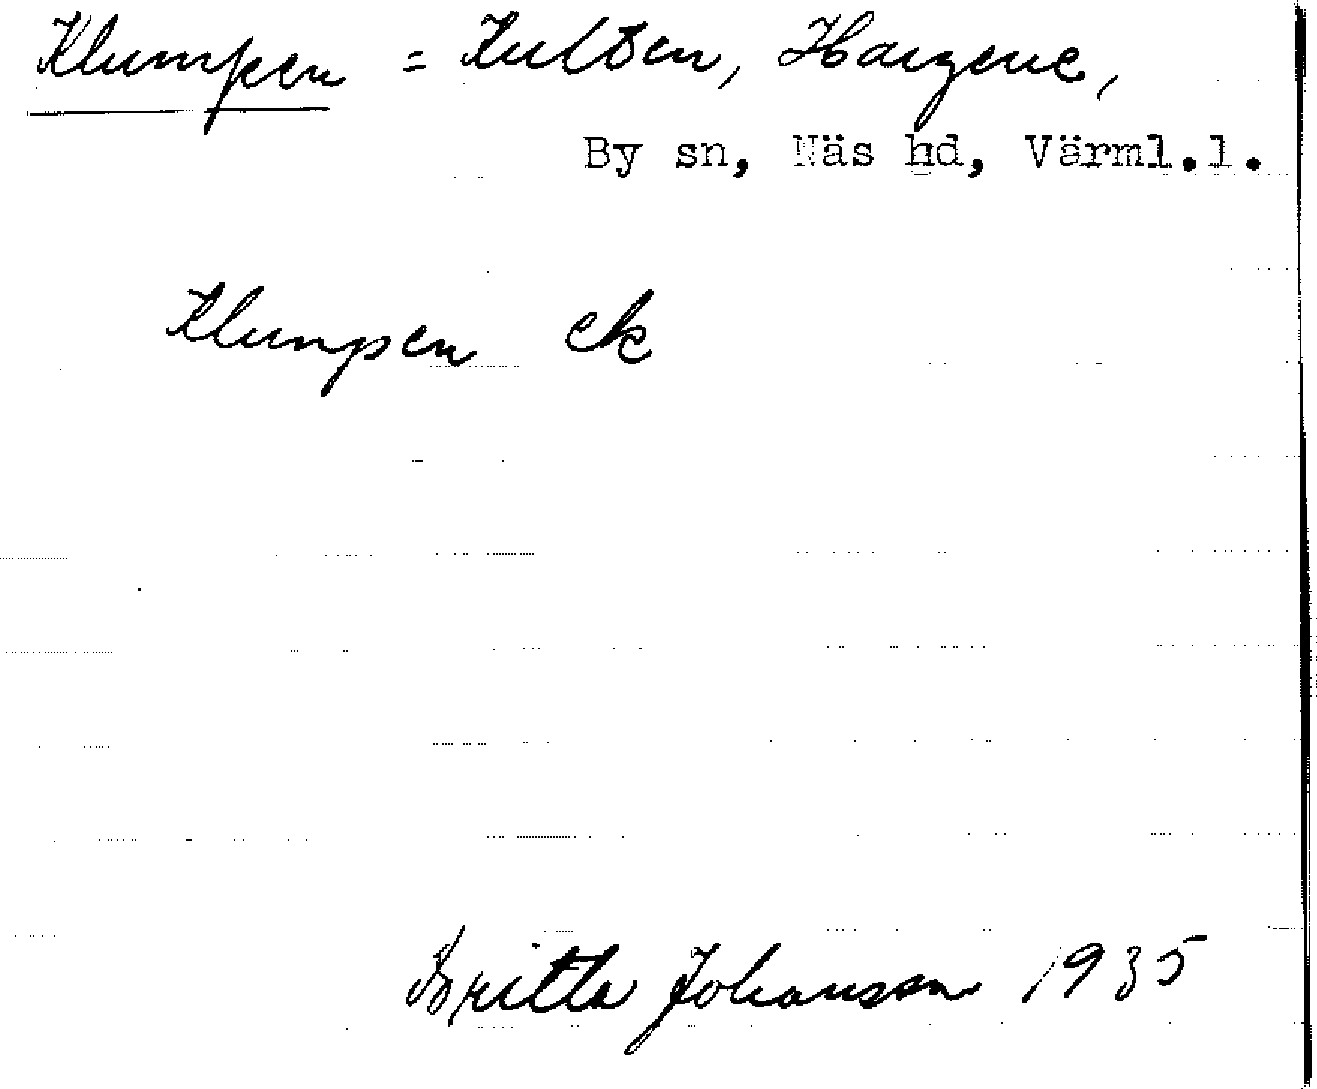 Klumpen = Kulten, Hargene,
By sn, Näs hd, Värml.l.
Klumpen ek
Britta Johansson 1935